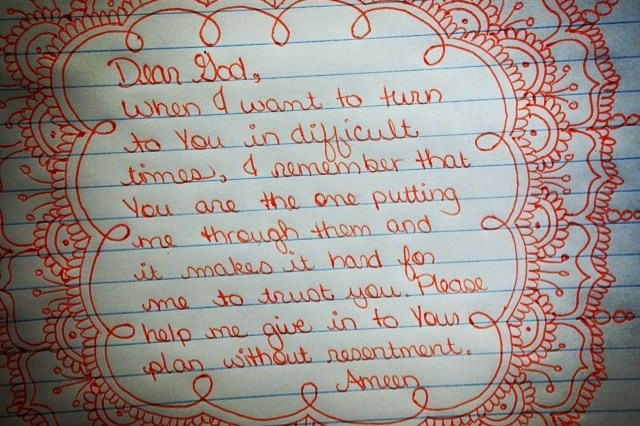 Dear God,
When I want to turn
to You in difficult
times, I remember that
You are the one putting
me through them and
it makes it hard for
me to trust you. Please
help me give in to Your
plan without resentment.
Ameen